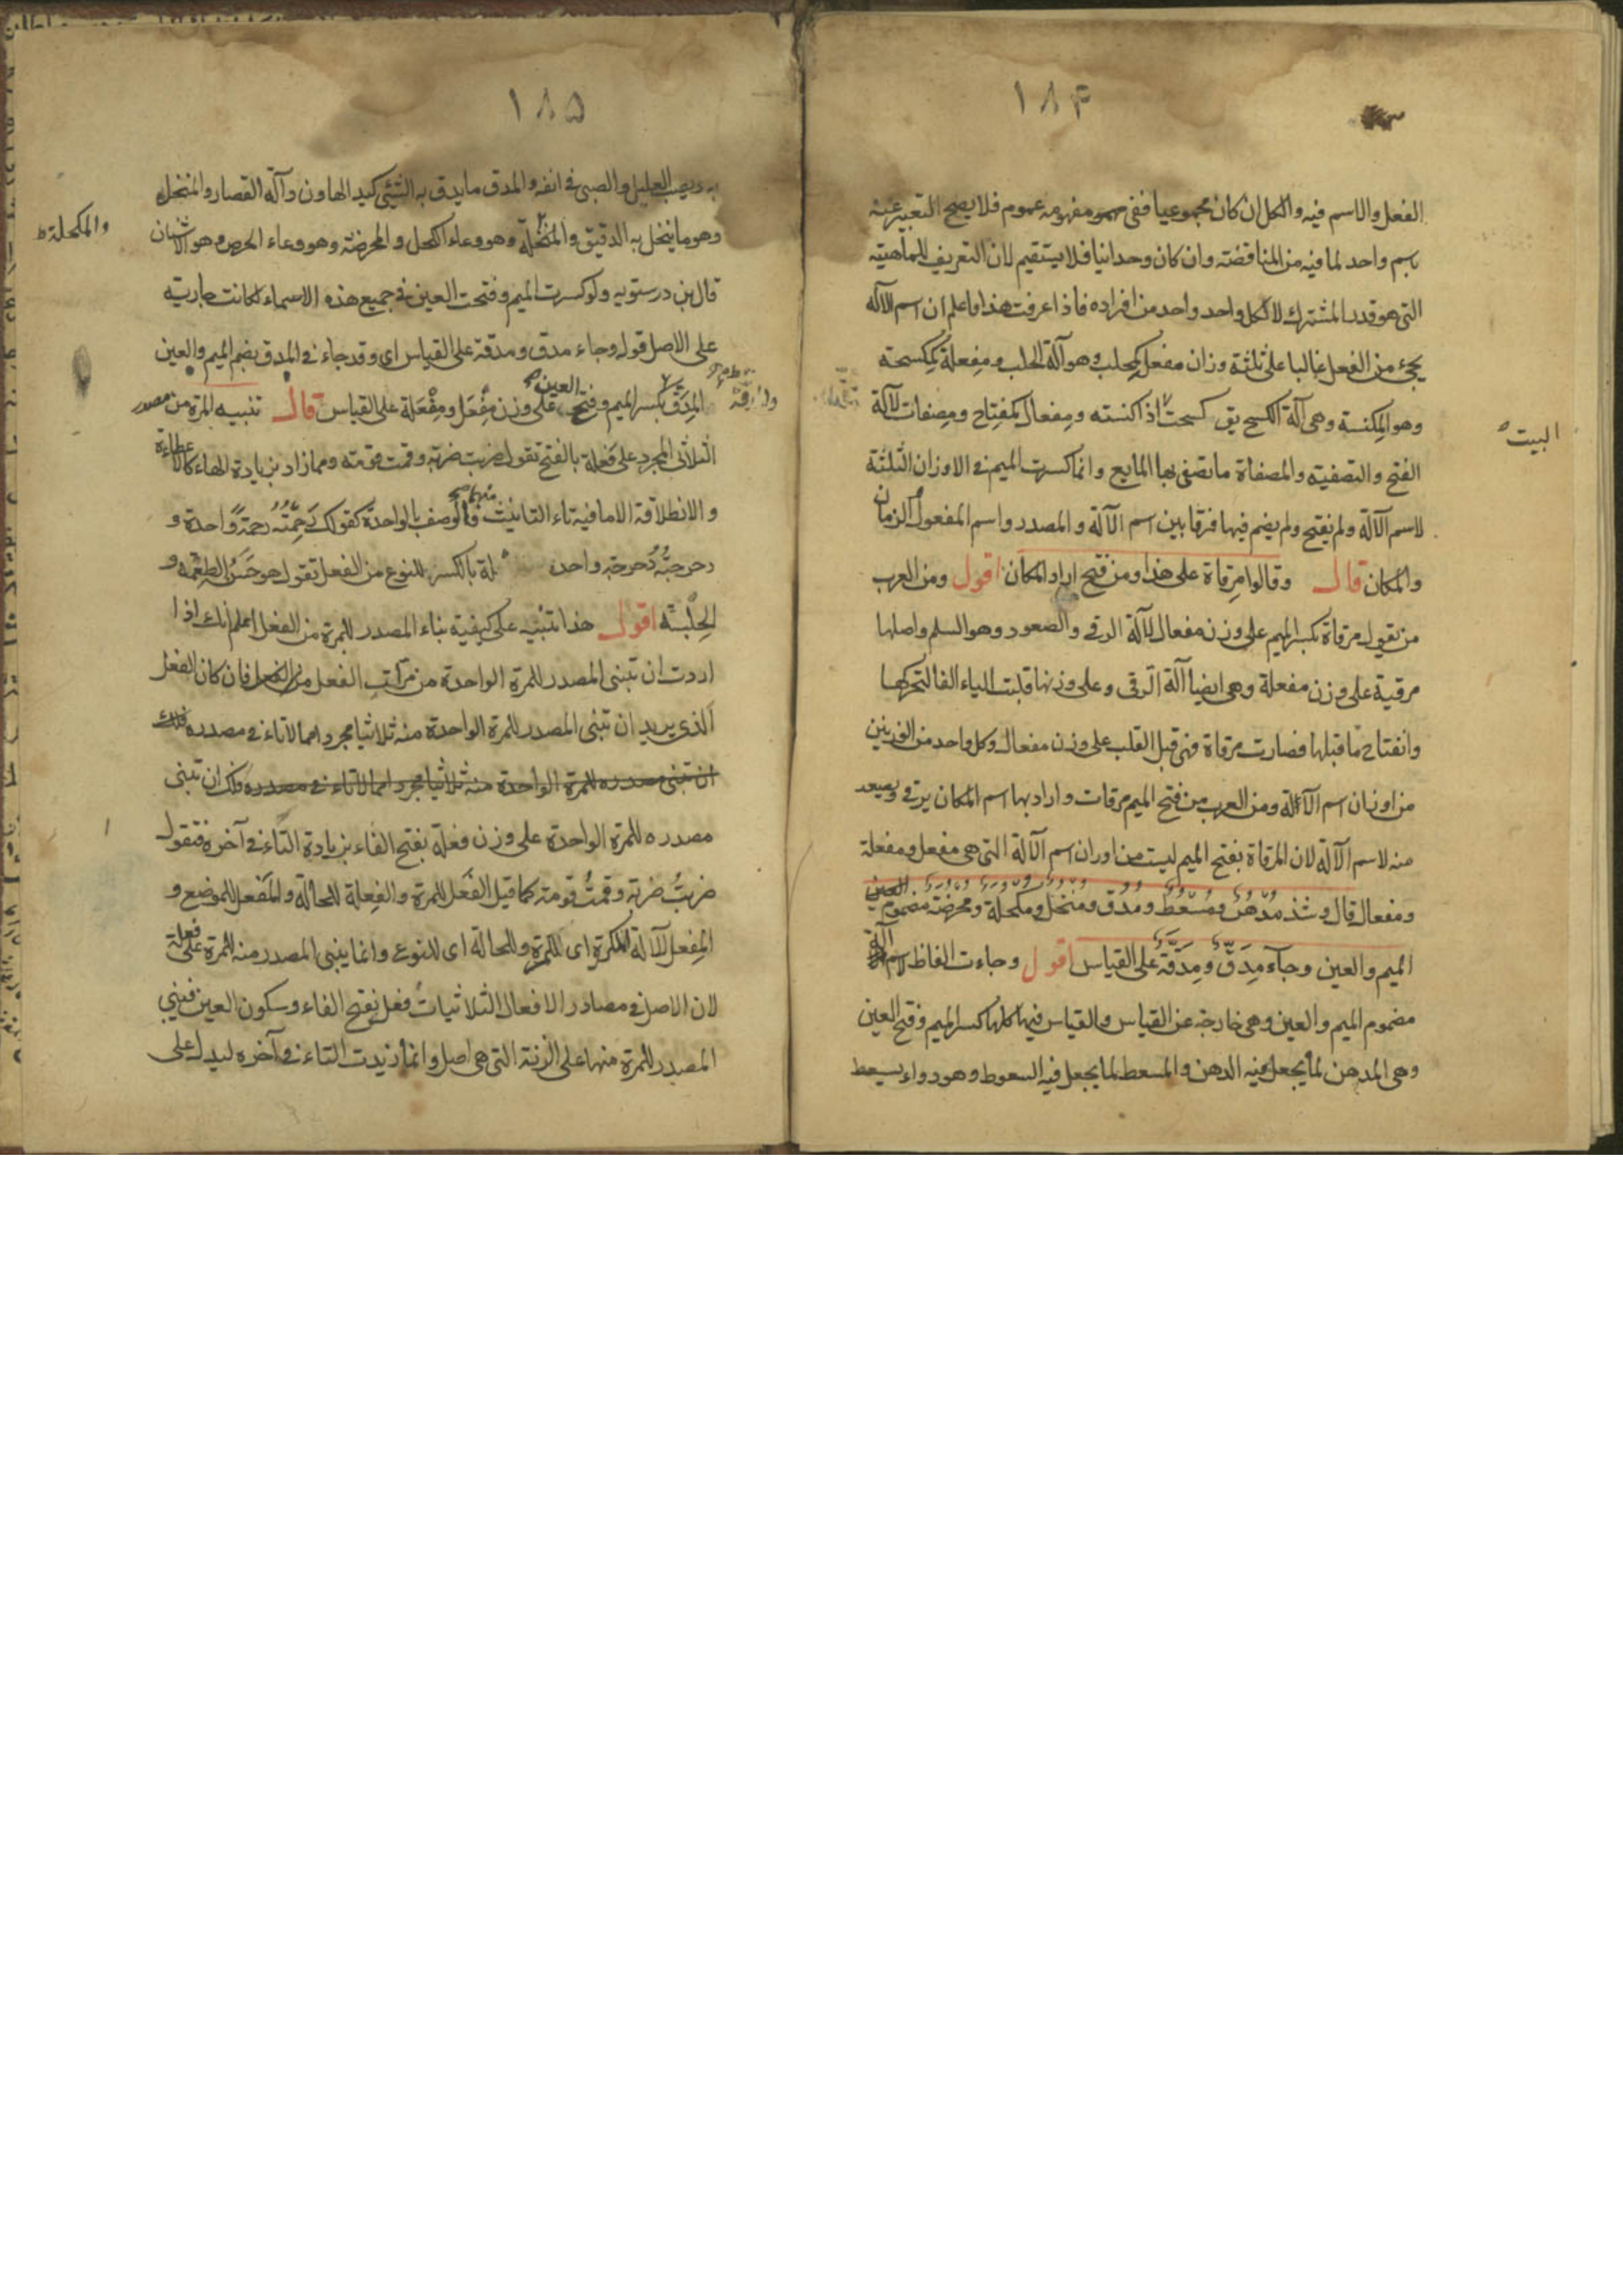 ١٨٤
الفعل والاسم فيه والكل ان كان مجموعيا ففى مفهومه عموم فلا يصح التعبير عنه
باسم واحد لما فيه من المناقضة وان كان وحدانيا فلا يستقيم لان التعريف للماهية
التى هو قدر المشترك لا لكل واحد واحد من افراده فاذا عرفت هذا فاعلم ان اسم الآلة
يجئ من الفعل غالبا على ثلثة وزان مفعل كمحلب وهو آلة الحلب ومفعلة كمكسحة
وهو المكنسة وهى آلة الكسح يق كسحت اذا كنسته ومفعال كمفتاح ومصفات لآلة
البيت
الفتح والتصفية والمصفاة ما تصفى بها المايع وانما كسرت الميم فى الاوزان الثلثة
لاسم الآلة ولم يفتح ولم يضم فيها فرقا بين اسم الآلة والمصدر واسم المفعول الزمان
والمكان قال وقالوا مرقاة على هذا ومن فتح اراد المكان اقول ومن العرب
من يقول مرقاة بكسر الميم على وزن مفعال لآلة الرقى والصعود وهو السلم واصلها
مرقية على وزن مفعلة وهى ايضا آلة الرقى وعلى وزنها قلبت الياء الفا لتحركها
وانفتاح ما قبلها فصارت مرقاة فهى قبل القلب على وزن مفعال وكل واحد من الوزنين
من اوزان اسم الآلة ومن العرب من فتح الميم مرقات واراد بها اسم المكان يرقى ويصعد
منه لاسم الآلة لان المرقاة بفتح الميم ليست من اوزان اسم الآلة التى هى مفعل ومفعلة
ومفعال قال وشذ مدهن ومسعط ومدق ومنخل ومكحلة ومحرضة مضموم العين
الميم والعين وجاء مدق ومدقة على القياس اقول وجاءت الفاظ لاسم الآلة
مضموم الميم والعين وهى خارجة عن القياس والقياس فيها كلها كسر الميم وفتح العين
وهى المدهن لما يجعل فيه الدهن والمسعط لما يجعل فيه السعوط وهو دواء يسعط
١٨٥
به ويصب العليل والصبى فى انفه والمدق ما يدق به الشئ كيد الهاون وآلة القصار والمنخل
وهو ما ينخل به الدقيق والمكحلة وهو وعاء الكحل والمحرضة وهو وعاء الحرض وهو الاشنان
والمكحلة ط
قال بن درستويه ولو كسرت الميم وفتحت العين فى جميع هذه الاسماء لكانت جارية
على الاصل قوله وجاء مدق ومدقة على القياس اى وقد جاء فى المدق بضم الميم والعين
المدق بكسر الميم وفتح العين على وزن مفعل ومفعلة على القياس قال تنبيه المرة من مصدر
الثلاثى المجرد على فعلة بالفتح تقول ضربت ضربة وقمت قومة ومما زاد بزيادة الهاء كالاعطاءة
والانطلاقة الا ما فيه تاء التانيث منهما فالوصف بالواحدة كقولك رحمته رحمة واحدة و
دحرجته دحرجة واحدة بالكسر للنوع من الفعل تقول هو حسن الطعمة و
الجلسة اقول هذا تنبيه على كيفية بناء المصدر للمرة من الفعل اعلم انك اذا
اردت ان تبنى المصدر للمرة الواحدة من مراتب الفعل من الفعل فان كان الفعل
الذى يريد ان تبنى المصدر للمرة الواحدة منه ثلاثيا مجردا مما لا تاء فى مصدره فلك
ان تبنى مصدره للمرة الواحدة منه ثلاثيا مجردا مما لا تاء فى مصدره فلك ان تبنى
مصدره للمرة الواحدة على وزن فعلة بفتح الفاء بزيادة التاء فى آخره فتقول
ضربت ضربة وقمت قومة كما قيل الفعل للمرة والفعلة للحالة والمفعل للموضع و
المفعل للآلة اى للمرة وللحالة اى للنوع وانما يبنى المصدر منه للمرة على فعلة
لان الاصل فى مصادر الافعال الثلاثيات فعل بفتح الفاء وسكون العين فبنى
المصدر للمرة منها على الزنة التى هى اصل وانما زيدت التاء فى آخره ليدل على